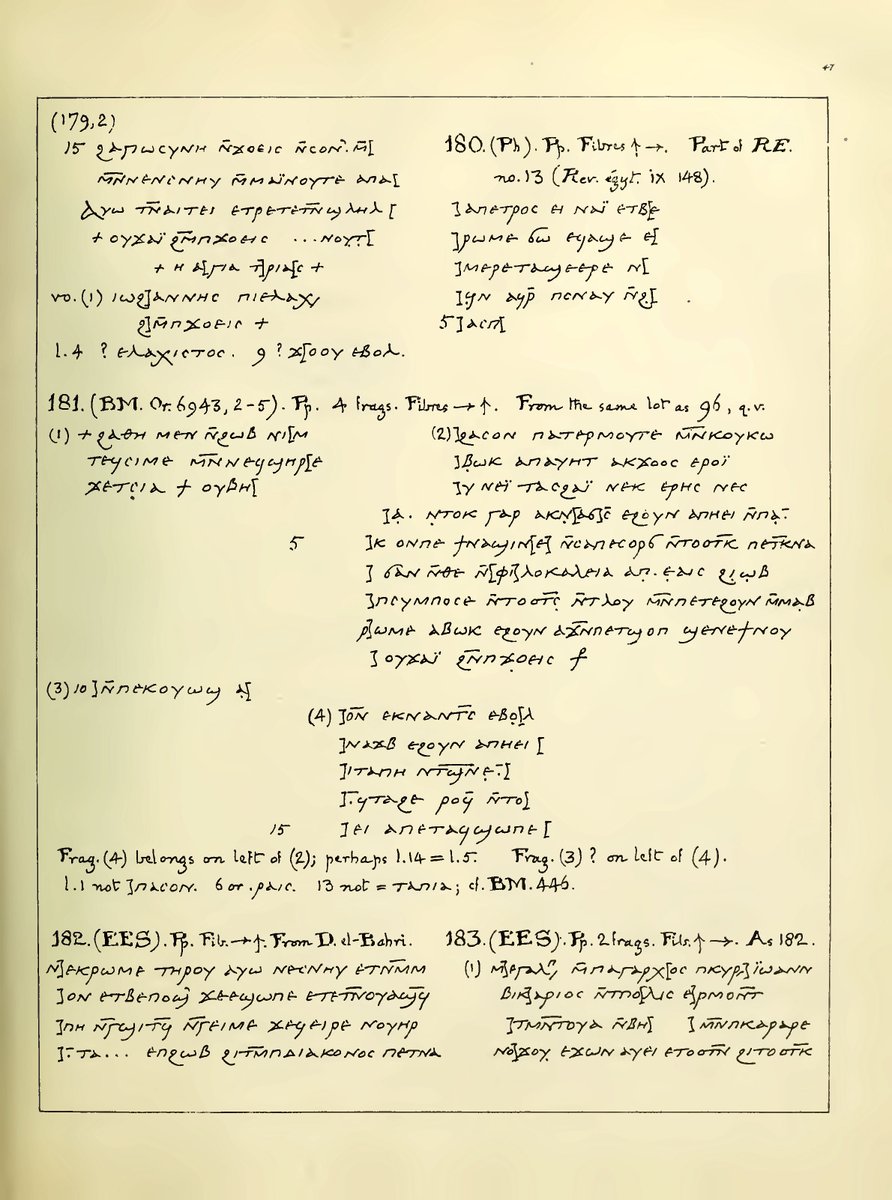 47
(179,2)
15 ϩⲁⲅⲓⲱⲥⲩⲛⲏ ⲛ̄ϫⲟⲉⲓⲥ ⲛ̄ⲥⲟⲛ̣.ⲙ̄[
ⲙⲛ̄ⲛⲉⲛⲥⲛⲏⲩ ⲙ̄ⲙⲁⲓ̈ⲛⲟⲩⲧⲉ ⲁⲡⲁ[
ⲁⲩⲱ ⲧⲛ̄ⲁⲓⲧⲉⲓ ⲉⲧⲣⲉⲧⲉⲧⲛ̄ϣⲗⲏⲗ [
+ ⲟⲩϫⲁⲓ̈ ϩⲙ̄ⲡϫⲟⲉⲓⲥ ...ⲛⲟⲩⲧ̣[
+ ⲏ ⲁ[ⲅⲓⲁ ⲧ]ⲣⲓⲁ[ⲥ +
vo.(1) ⲓⲱϩ]ⲁⲛⲛⲏⲥ ⲡⲓⲉⲗⲁⲭ/
ϩ]ⲙ̄ⲡϫⲟⲉⲓⲥ +
l.4 ? ⲉⲗⲁⲭⲓⲥⲧⲟⲥ. 9 ? ϫ[ⲟⲟⲩ ⲉⲃⲟⲗ.
180.(Ph). Pp. Fibres ↑→. Part of RE.
no.13 (Rev. égyt. ix 148).
]ⲁⲡⲉⲧⲣⲟⲥ ⲉⲓ ⲛⲁⲓ̈ ⲉⲧⲃ[ⲉ
]ⲣⲱⲙⲉ ϭⲱ ⲉϥⲁϣⲉ ⲉ[
]ⲙⲉⲣⲉⲧⲁϣⲉⲉⲣⲉ ⲛ[
]ϥⲛ ⲁⲩⲣ̄ ⲡⲥⲛⲁⲩ ⲛ̄ϩ[
5 ]ⲁⲥⲡ[
181.(BM. Or. 6943, 2-5). Pp. 4 frags. Fibres →↑. From the same lot as 96, q.v.
(1) +ϩⲁⲑⲏ ⲙⲉⲛ ⲛ̄ϩⲱⲃ ⲛⲓ[ⲙ
ⲧⲉϥⲥⲓⲙⲉ ⲙⲛ̄ⲛⲉϥϣⲏⲣ[ⲉ
ϫⲉⲧⲥ̣ⲓⲁ ϯ ⲟⲩⲃⲏ[
(2) ]ϩⲁⲥⲟⲛ ⲡⲁⲧⲉⲣⲙⲟⲩⲧⲉ ⲙⲛ̄ⲕⲟⲩⲕⲱ
]ⲃⲱⲕ ⲁⲡⲁϥⲏⲧ ⲁⲕϫⲟⲟⲥ ⲉⲣⲟⲓ̈
]ⲩ ⲛⲉⲓ̈ ⲧⲁⲥϩⲁⲓ̈ ⲛⲉⲕ ⲉⲣⲏⲥ ⲛⲉⲥ
]ⲁ̣. ⲛⲧⲟⲕ ⲅⲁⲣ ⲁⲕⲛ̣[ⲁϭ]ⲥ̄ ⲉϩⲟⲩⲛ ⲁⲡⲏⲉⲓ ⲛ̄ⲡⲁ̣.̄
5 ]ⲕ ⲟⲛⲡⲉ ϯⲛⲁϣⲓⲛ[ⲉ] ⲛ̄ⲥⲁⲡⲉⲥⲟⲣϭ ⲛ̄ⲧⲟⲟⲧⲕ̄ ⲡⲉⲧ̄ⲕⲛⲁ
] ϭⲁ̄ⲛ ⲛ̄ⲑⲉ ⲛ̄[ⲫⲓ]ⲗⲟⲕⲁⲗⲉⲓⲁ ⲁⲡ̣.ⲉⲁⲓⲥ ϩⲓ̣ⲱ̣ⲃ
]ⲡⲥⲩⲙⲡⲟⲥⲉ ⲛ̄ⲧⲟⲟⲧⲥ̄ ⲛ̄ⲧⲗⲟⲩ ⲙⲛ̄ⲡⲉⲧⲉϩⲟⲩⲛ ⲙ̄ⲙⲁ̣ⲃ
ⲣ]ⲱⲙⲉ ⲁⲃⲱⲕ ⲉϩⲟⲩⲛ ⲁϫⲛ̄ⲡⲉⲧϣⲟⲡ ϣⲉⲛⲉϯⲛⲟⲩ
] ⲟⲩϫⲁⲓ̈ ϩⲛ̄ⲡϫ̣ⲟⲉⲓⲥ ϯ
(3) 10 ]ⲛ̄ⲡⲉⲕⲟⲩⲱϣ ⲁ̣[
(4) ]ⲟⲛ̄ ⲉⲕⲛⲁⲛⲧⲥ̄ ⲉⲃⲟ̣[ⲗ
]ⲛⲁϫⲃ ⲉϩⲟⲩⲛ ⲁⲡⲏⲉⲓ [
]ⲓⲧⲁⲡⲏ ⲛⲧϣⲛⲉ̣.̄[
]..ϥⲧⲁϩⲉ ⲣⲟϥ̄ ⲛ̄ⲧⲟ[
15 ]ⲉⲓ ⲁⲡⲉⲧⲁϥϣⲱⲡⲉ [
Frag.(4) belongs on left of (2); perhaps l.14 = l.5. Frag.(3) ? on left of (4).
l.1 not ]ⲡⲁⲥⲟⲛ. 6 or .ⲣⲁⲓⲥ. 13 not = ⲧⲁⲡⲓⲁ; cf. BM. 446.
182.(EES). Pp. Fib.→↑. From D. el-Bahri.
ⲛ]ⲉⲕⲣⲱⲙⲉ ⲧⲏⲣⲟⲩ ⲁⲩⲱ ⲛⲉⲥⲛⲏⲩ ⲉⲧⲛⲙ̄ⲙ
]ⲟⲛ ⲉⲧⲃⲉⲡⲟϣ̄ ϫⲉⲉϥϣⲱⲡⲉ ⲉⲧⲉⲧⲛ̄ⲟⲩⲁϣϥ̄
]ⲡⲏ ⲛ̄ⲅϣⲓⲧϥ̄ ⲛ̄ⲅⲉⲓⲙⲉ ϫⲉϥⲉⲓⲣⲉ ⲛⲟⲩⲏⲣ
].̄ⲧⲁ... ⲉⲡϩⲱⲃ ϩⲓⲧⲙ̄ⲡⲇⲓⲁⲕⲟⲛⲟⲥ ⲡⲉⲧⲛⲁ
183.(EES). Pp. 2 frags. Fib.↑→. As 182.
(1) ⲙ]ⲉⲅⲁⲗ// ⲙ̄ⲡⲁⲅⲁⲣⲭ[ⲟⲥ ⲡⲕⲩⲣ/] ⲓ̈ⲱⲁⲛⲛ
ⲃⲓⲕ]ⲁⲣⲓⲟⲥ ⲛ̄ⲧⲡⲟ[ⲗⲓⲥ ⲉ]ⲣⲙⲟⲛ̄ⲧ
]ⲧⲙⲛ̄ⲧⲟⲩⲁ ⲛ̄ⲃⲏ[ ] ⲙⲛ̄ⲡⲕⲁⲣⲁⲣⲉ
ⲛⲟ]ϫⲟⲩ ⲉϫⲱⲛ ⲁⲩⲉⲓ ⲉⲧⲟⲟⲧⲛ̄ ϩⲓⲧⲟⲟⲧⲕ̄